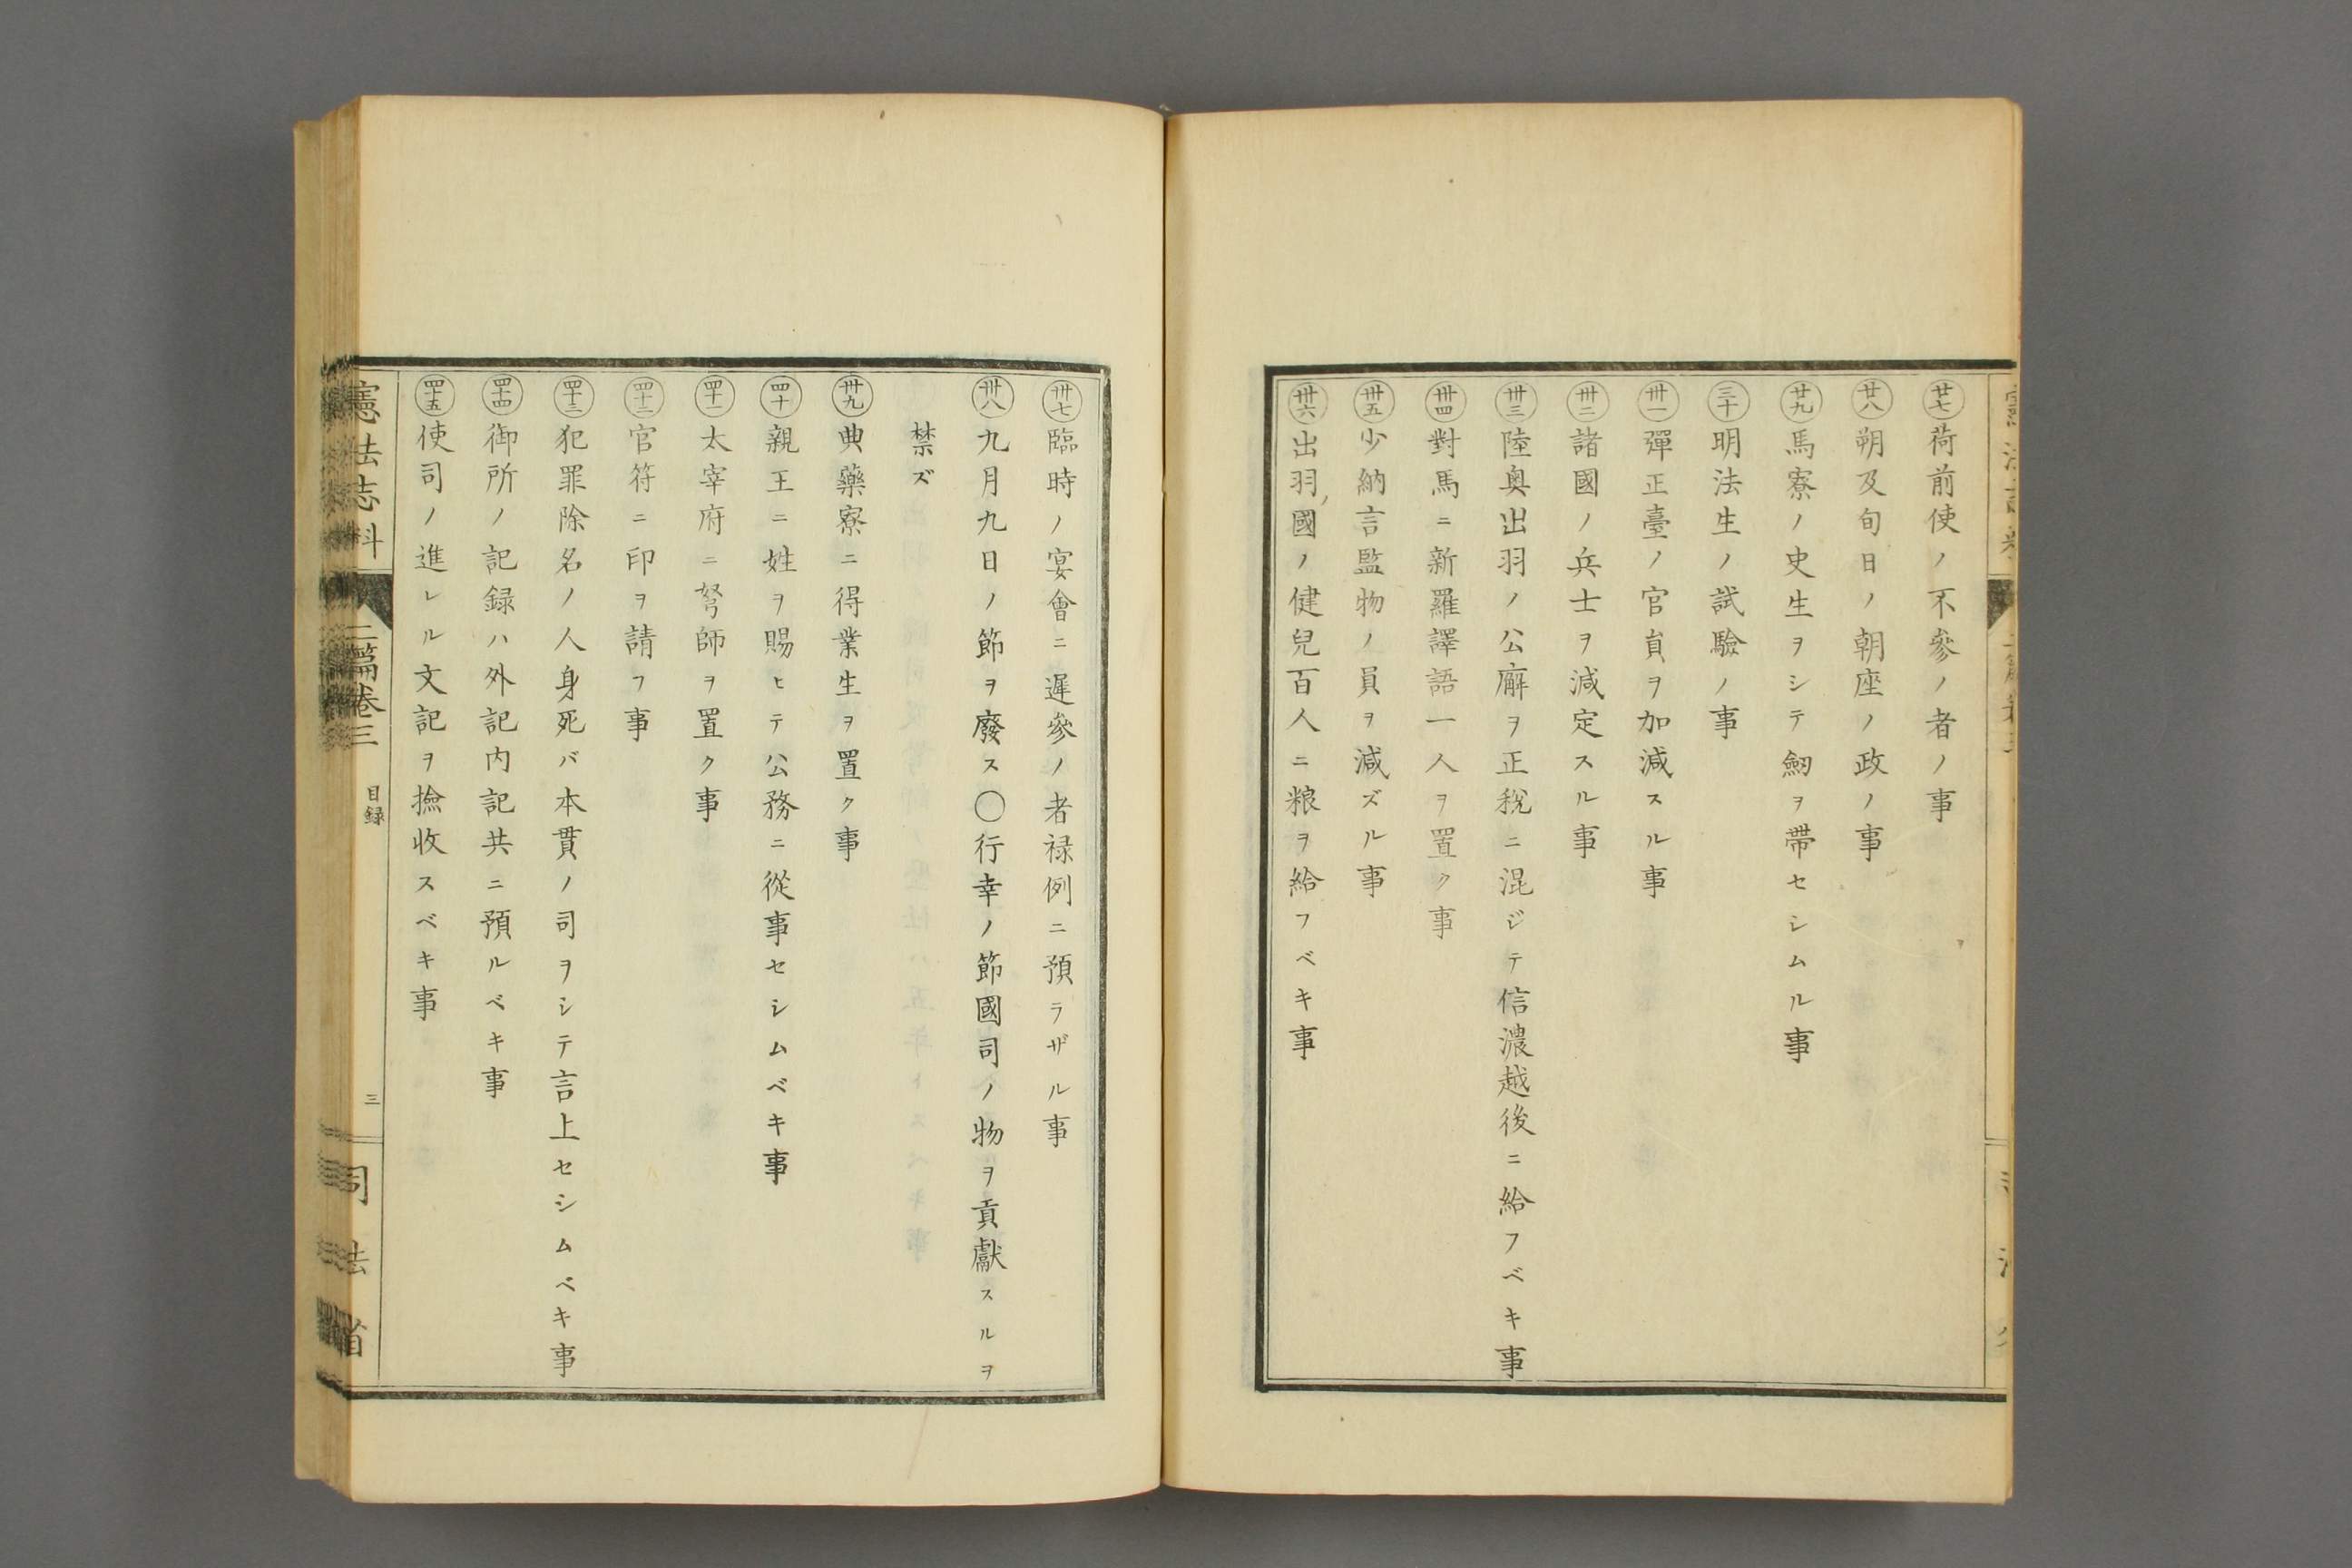 廿七荷前使ノ不參ノ者ノ事
廿八朔及旬日ノ朝座ノ政ノ事
廿九馬寮ノ史生ヲシテ劒ヲ帶セシムル事
三十明法生ノ試驗ノ事
丗一彈正臺ノ官員ヲ加減スル事
丗二諸國ノ兵士ヲ減定スル事
丗三陸奥出羽ノ公廨ヲ正稅ニ混ジテ信濃越後ニ給フベキ事
丗四對馬ニ新羅譯語一人ヲ置ク事
丗五少納言監物ノ員ヲ減ズル事
丗六出羽國ノ健兒百人ニ粮ヲ給フベキ事
丗七臨時ノ宴會ニ遲參ノ者禄例ニ預ラザル事
丗八九月九日ノ節ヲ廢ス〇行幸ノ節國司ノ物ヲ貢獻スルヲ
禁ズ
丗九典藥寮ニ得業生ヲ置ク事
四十親王ニ姓ヲ賜ヒテ公務ニ從事セシムベキ事
四十一太宰府ニ弩師ヲ置ク事
四十二官符ニ印ヲ請フ事
四十三犯罪除名ノ人身死バ本貫ノ司ヲシテ言上セシムベキ事
四十四御所ノ記録ハ外記内記共ニ預ルベキ事
四十五使司ノ進レル文記ヲ撿收スベキ事
憲法志料 二篇卷三 目録 三 司法省